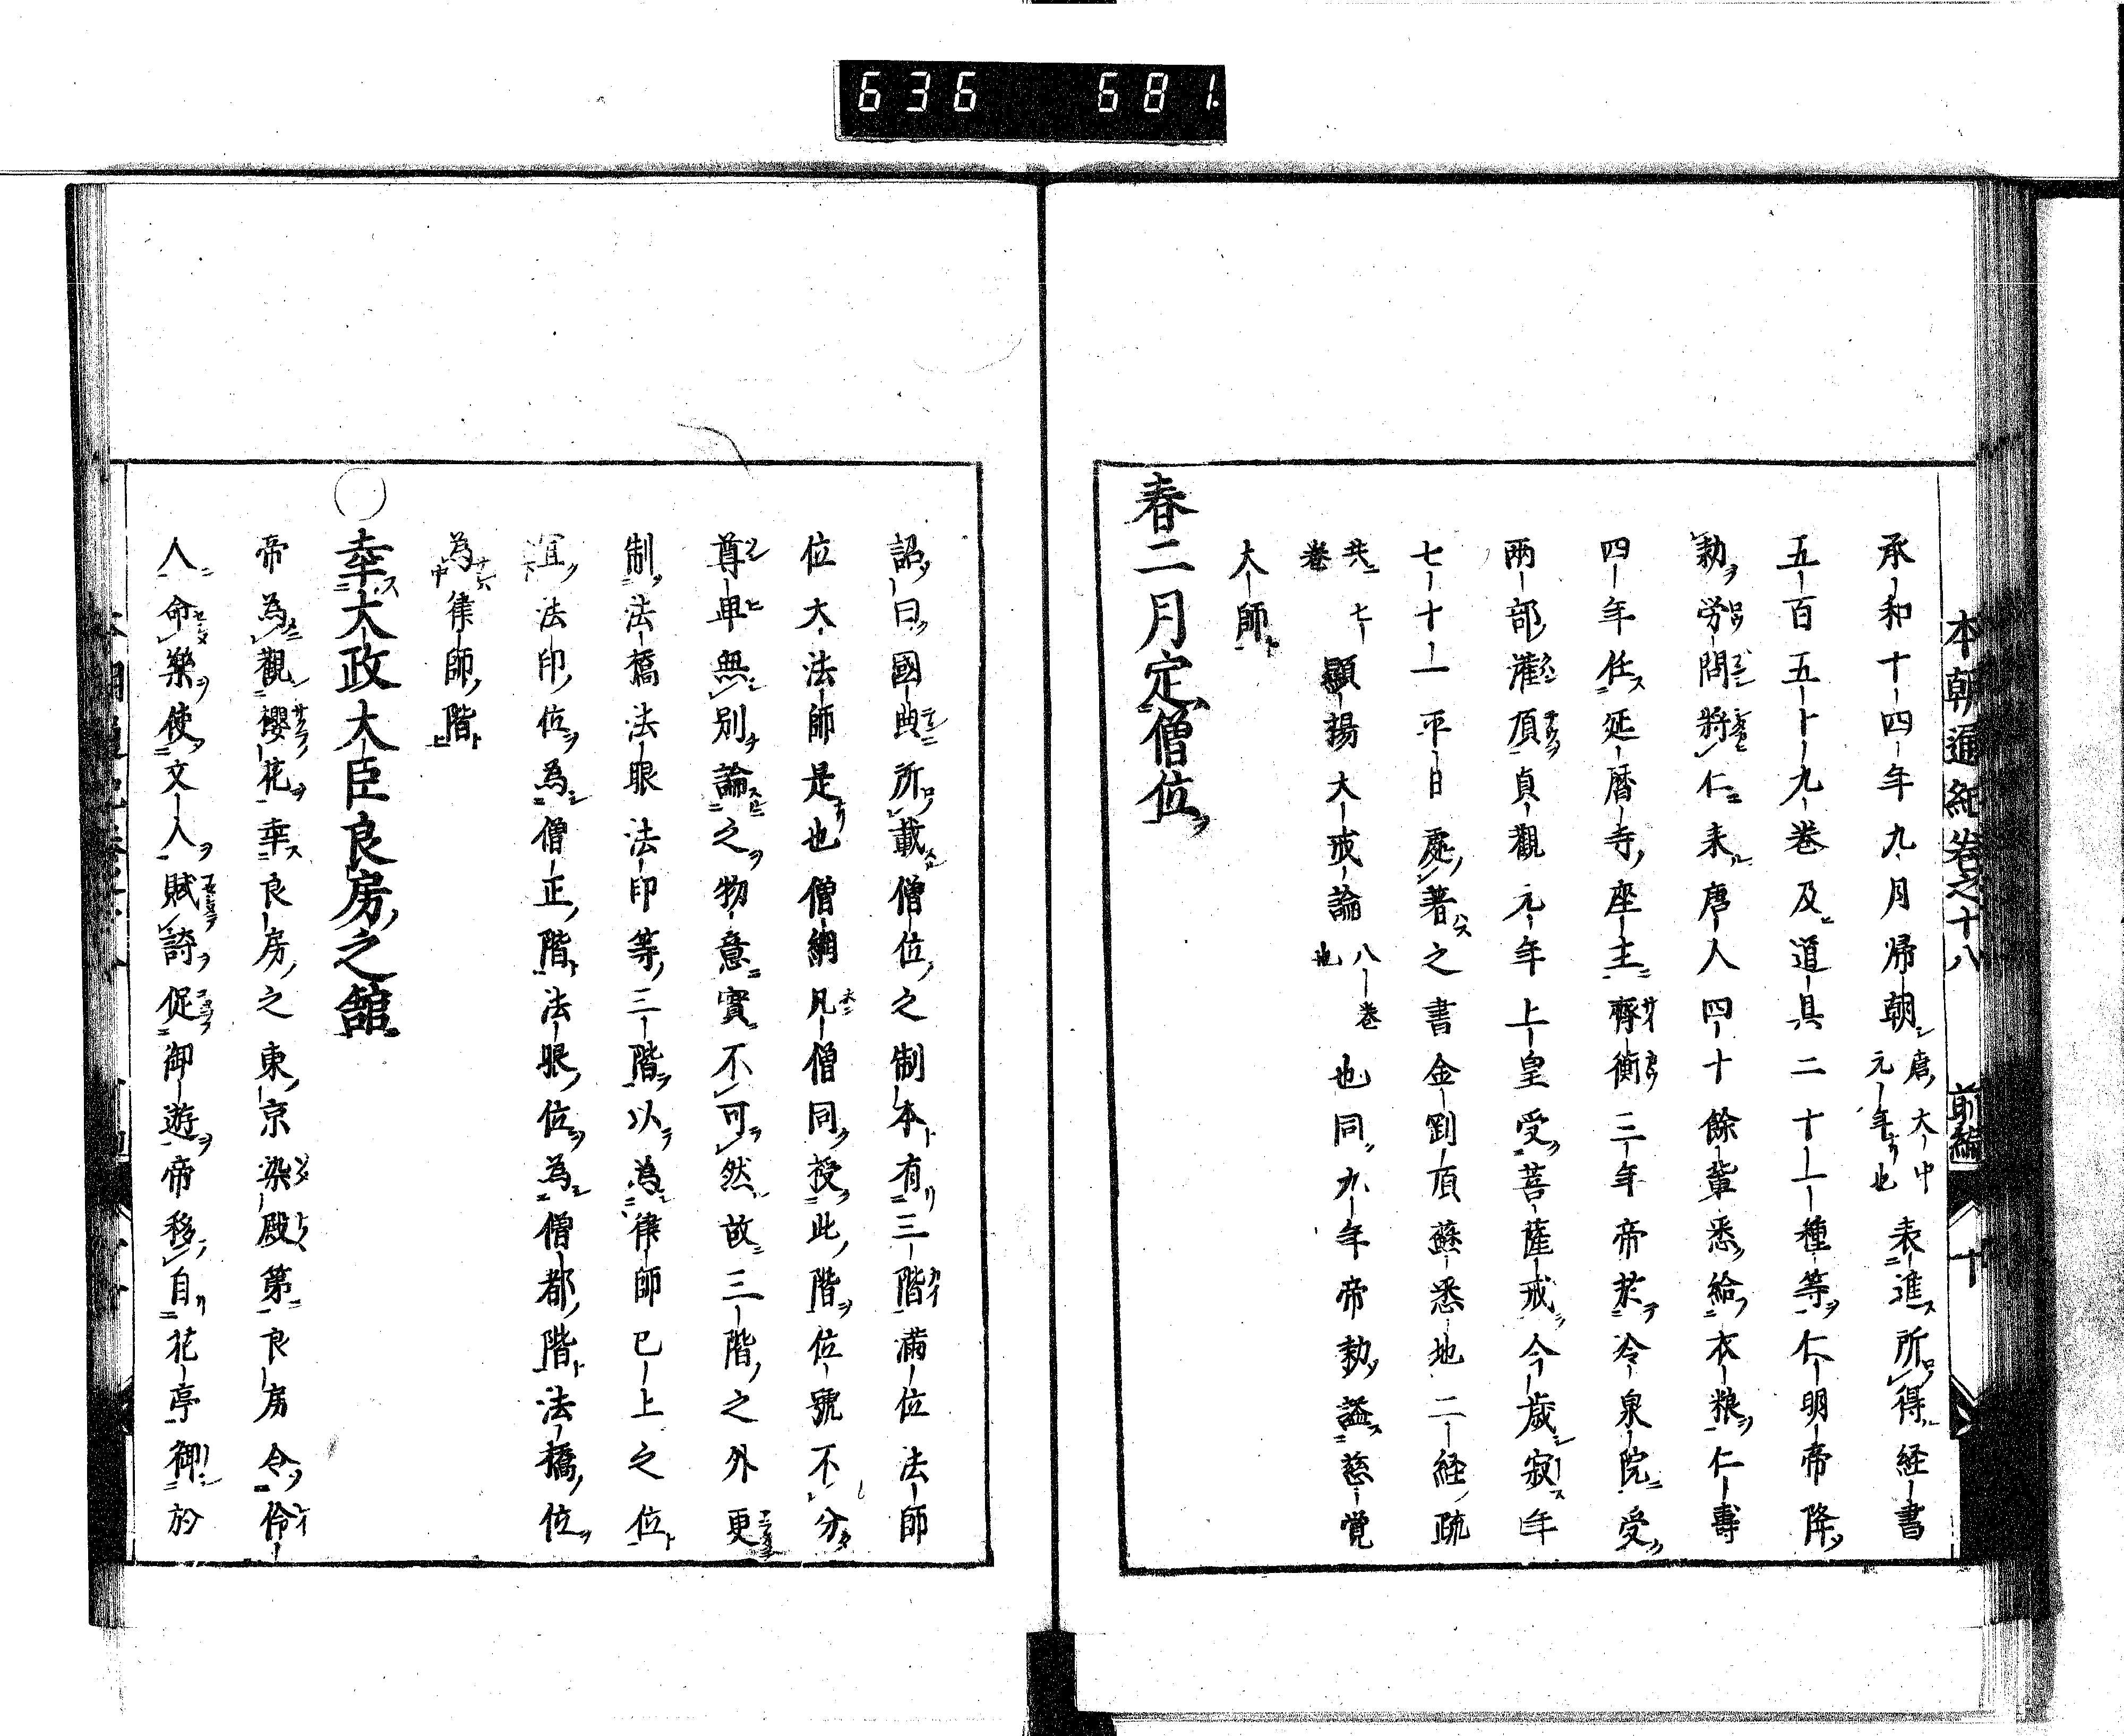 636 681
本朝通紀卷之十八 前編 十
承和十四年九月帰朝唐大中元年也表進所得経書
五百五十九卷及道具二十一種等仁明帝降
勅労問将仁来唐人四十餘輩悉給衣粮仁壽
四年任延暦寺座主齊衡三年帝於冷泉院受
兩部灌頂貞觀元年上皇受菩薩戒今歳寂年
七十一平日所著之書金剛頂蘇悉地二経疏
共七卷顯揚大戒論八卷也也同九年帝勅謚慈覚
大師
春二月定僧位
詔曰國典所載僧位之制本有三階満位法師
位大法師是也僧綱凡僧同授此階位號不分
尊卑無別論之物意實不可然故三階之外更
制法橋法眼法印等三階以為律師已上之位
宜法印位為僧正階法眼位為僧都階法橋位
為律師階
○幸太政大臣良房之舘
帝為觀櫻花幸良房之東京染殿第良房令伶
人命樂使文人賦詩促御遊帝移自花亭御於